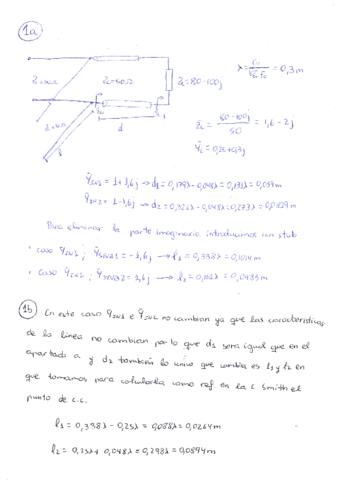 1a
λ = = 0,3m
Z0=50Ω
ZL=80-100j
d
ZL = 80-100j / 50 = 1,6-2j
YL = 0,25+0,3j
Yin1 = 1+1,6j → d1 = 0,179λ-0,048λ = 0,131λ = 0,039m
Yin2 = 1-1,6j → d2 = 0,321λ-0,048λ = 0,273λ = 0,0819m
Para eliminar la parte imaginaria introducimos con stub
· caso Yin1 ; = -1,6j → l1 = 0,338λ = 0,1014m
· caso Yin2 ; = 1,6j → l2 = 0,0483m
1b
En este caso Yin1 e Yin2 no cambian ya que las características
de la línea no cambian por lo que d1 será igual que en el
apartado a y d2 también lo único que cambia es l1 y l2 en
que tomamos para calcularla como ref en la C. Smith el
punto de c.c.
l1 = 0,338λ - 0,25λ = 0,088λ = 0,0264m
l2 = 0,25λ + 0,048λ = 0,298λ = 0,0894m